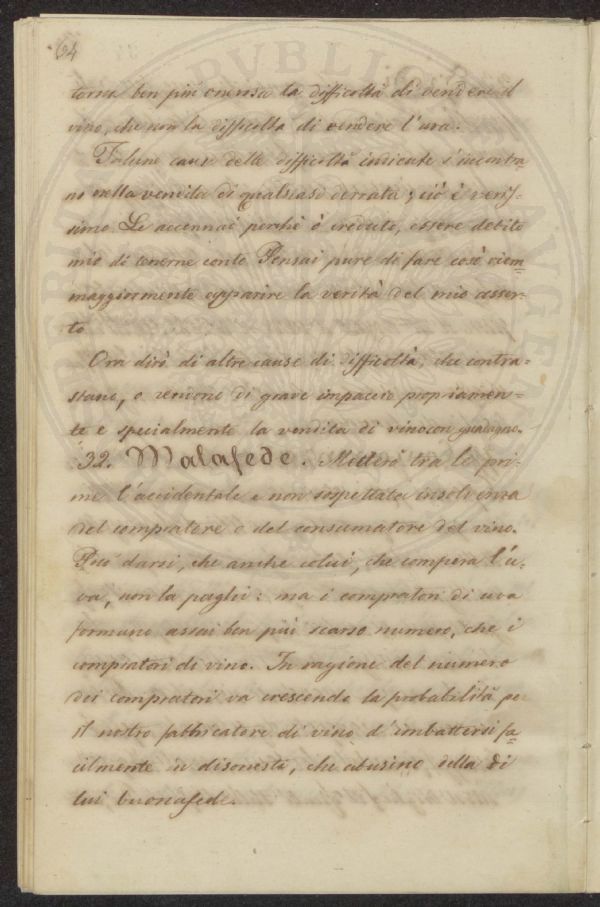 64
torna ben più onerosa la difficoltà di vendere il
vino, che non la difficoltà di vendere l'uva.
Talune cause delle difficoltà indicate s'incontra-
no nella vendita di qualsiasi derrata; ciò è veris-
simo. Le accennai perchè ò creduto, essere debito
mio di tenerne conto. Pensai pure di fare così viem-
maggiormente apparire la verità del mio asser-
to.
Ora dirò di altre cause di difficoltà, che contra-
stano, o sono di grave impaccio propriamen-
te e specialmente la vendita di vino con guadagno.
32. Malafede. Metterò tra le pri-
me l'accidentale e non sospettata insolvenza
del compratore o del consumatore del vino.
Può darsi, che anche colui, che compera l'u-
va, non la paghi: ma i compratori di uva
formano assai ben più scarso numero, che i
compratori di vino. In ragione del numero
dei compratori va crescendo la probabilità pe
il nostro fabbricatore di vino d'imbattersi fa-
cilmente in disonesti, che abusino della di
lui buonafede.